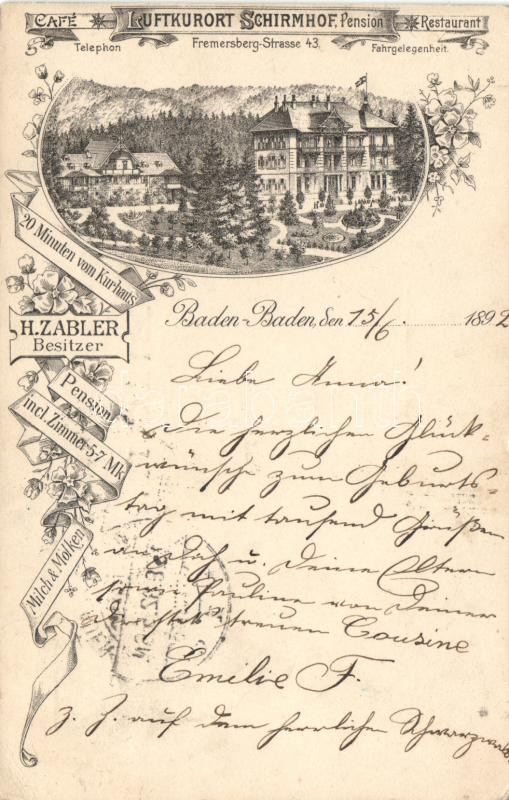 CAFÉ LUFTKURORT SCHIRMHOF, Pension Restaurant
Telephon Fremersberg-Strasse 43. Fahrgelegenheit.
20 Minuten vom Kurhaus
H. ZABLER
Besitzer
Pension
incl. Zimmer 5-7 Mk
Milch & Molken
Baden-Baden, den 15/6. 1892
Liebe Anna!
Die herzlichen Glück-
wünsche zum Geburts-
tag mit tausend Grüßen
an Dich u. Deine Eltern
sowie Pauline von Deiner
treuen Cousine
Emilie F.
z. Z. auf dem herrlichen Schwarzwald
darabanth